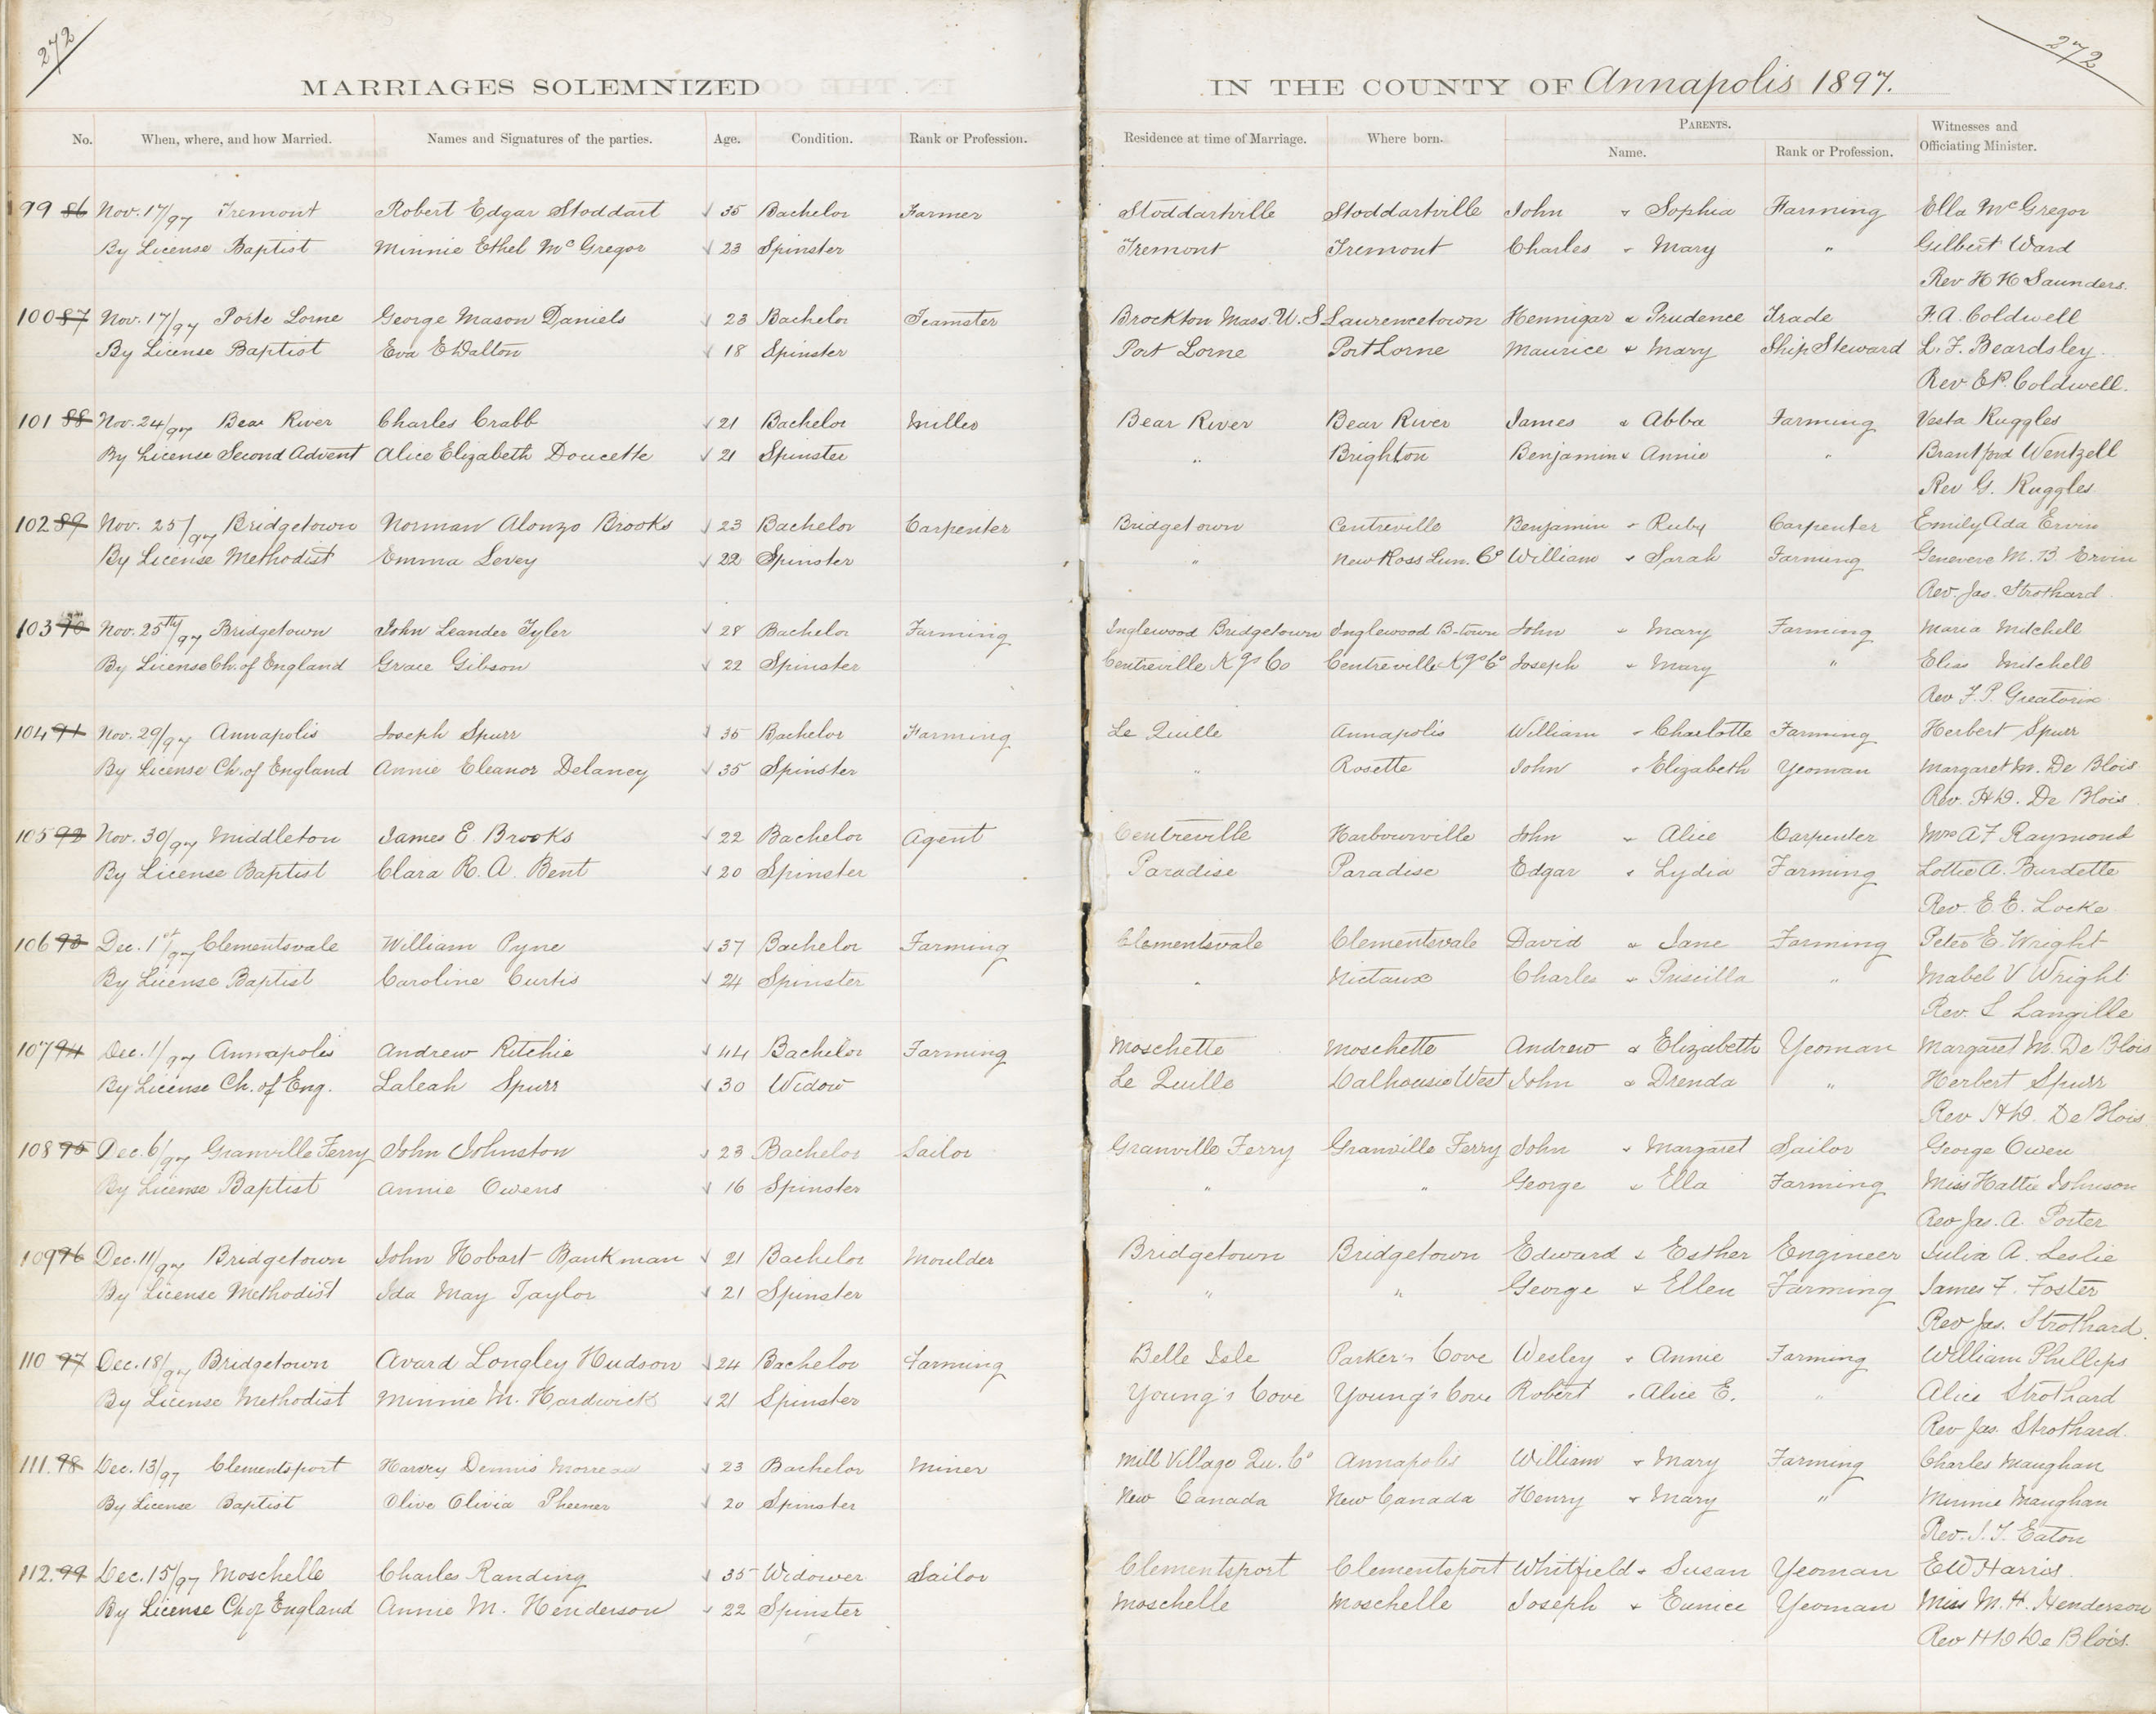 272
272
MARRIAGES SOLEMNIZED IN THE COUNTY OF Annapolis 1897.
No. When, where, and how Married. Names and Signatures of the parties. Age. Condition. Rank or Profession. Residence at time of Marriage. Where born. PARENTS. Name. Rank or Profession. Witnesses and Officiating Minister.
99 86 Nov. 17/97 Tremont Robert Edgar Stoddart √ 35 Bachelor Farmer Stoddartville Stoddartville John & Sophia Farming Ella McGregor
By License Baptist Minnie Ethel McGregor √ 23 Spinster Tremont Tremont Charles & Mary " Gilbert Ward
Rev H H Saunders.
100 87 Nov. 17/97 Porte Lorne George Mason Daniels √ 23 Bachelor Teamster Brockton Mass. U.S Laurencetown Hennigar & Prudence Trade F. A. Coldwell
By License Baptist Eva E Dalton √ 18 Spinster Port Lorne Port Lorne Maurice & Mary Ship Steward L. F. Beardsley
Rev E P. Coldwell.
101 88 Nov. 24/97 Bear River Charles Crabb √ 21 Bachelor Miller Bear River Bear River James & Abba Farming Vesta Ruggles
By License Second Advent Alice Elizabeth Doucette √ 21 Spinster " Brighton Benjamin & Annie " Brantford Wentzell
Rev G. Ruggles
102 89 Nov. 25/97 Bridgetown Norman Alonzo Brooks √ 23 Bachelor Carpenter Bridgetown Centreville Benjamin & Ruby Carpenter Emily Ada Ervin
By License Methodist Emma Levey √ 22 Spinster " New Ross Lun. Co William & Sarah Farming Genevere M. B. Ervin
Rev. Jas. Strothard
103 90 Nov. 25th/97 Bridgetown John Leander Tyler √ 28 Bachelor Farming Inglewood Bridgetown Inglewood B-town John & Mary Farming Maria Mitchell
By License Ch. of England Grace Gibson √ 22 Spinster Centreville Kgs Co Centreville Kgs Co Joseph & Mary " Elias Mitchell
Rev F. P. Greatorix
104 91 Nov. 29/97 Annapolis Joseph Spurr √ 35 Bachelor Farming Le Quille Annapolis William & Charlotte Farming Herbert Spurr
By License Ch. of England Annie Eleanor Delaney √ 35 Spinster " Rosette John & Elizabeth Yeoman Margaret M. De Blois
Rev. H D. De Blois
105 92 Nov. 30/97 Middleton James E. Brooks √ 22 Bachelor Agent Centreville Harbourville John & Alice Carpenter Mrs A F Raymond
By License Baptist Clara R. A. Bent √ 20 Spinster Paradise Paradise Edgar & Lydia Farming Lottie A. Burdette
Rev. E. E. Locke
106 93 Dec. 1st/97 Clementsvale William Pyne √ 37 Bachelor Farming Clementsvale Clementsvale David & Jane Farming Peter E. Wright
By License Baptist Caroline Curtis √ 24 Spinster " Nictaux Charles & Priscilla " Mabel V Wright
Rev. L Langille
107 94 Dec. 1/97 Annapolis Andrew Ritchie √ 44 Bachelor Farming Moschette Moschette Andrew & Elizabeth Yeoman Margaret M. De Blois
By License Ch. of Eng. Laleah Spurr √ 30 Widow Le Quille Dalhousie West John & Drenda " Herbert Spurr
Rev H D. De Blois
108 95 Dec. 6/97 Granville Ferry John Johnston √ 23 Bachelor Sailor Granville Ferry Granville Ferry John & Margaret Sailor George Owen
By License Baptist Annie Owens √ 16 Spinster " " George & Ella Farming Miss Hattie Johnson
Rev Jas. A. Porter
109 96 Dec. 11/97 Bridgetown John Hobart Bankman √ 21 Bachelor Moulder Bridgetown Bridgetown Edward & Esther Engineer Julia A. Leslie
By License Methodist Ida May Taylor √ 21 Spinster " " George & Ellen Farming James F. Foster
Rev Jas. Strothard.
110 97 Dec. 18/97 Bridgetown Avard Longley Hudson √ 24 Bachelor Farming Belle Isle Parker's Cove Wesley & Annie Farming William Phillips
By License Methodist Minnie M. Hardwick √ 21 Spinster Young's Cove Young's Cove Robert & Alice E. " Alice Strothard
Rev Jas. Strothard.
111. 98 Dec. 13/97 Clementsport Harvey Dennis Morreau √ 23 Bachelor Miner Mill Village Qu. Co Annapolis William & Mary Farming Charles Maughan
By License Baptist Olive Olivia Pheener √ 20 Spinster New Canada New Canada Henry & Mary " Minnie Maughan
Rev. J. T. Eaton
112. 99 Dec. 15/97 Moschelle Charles Randing √ 35 Widower Sailor Clementsport Clementsport Whitfield & Susan Yeoman E W Harris.
By License Ch of England Annie M. Henderson √ 22 Spinster Moschelle Moschelle Joseph & Eunice Yeoman Miss M. H. Henderson
Rev H D De Blois.